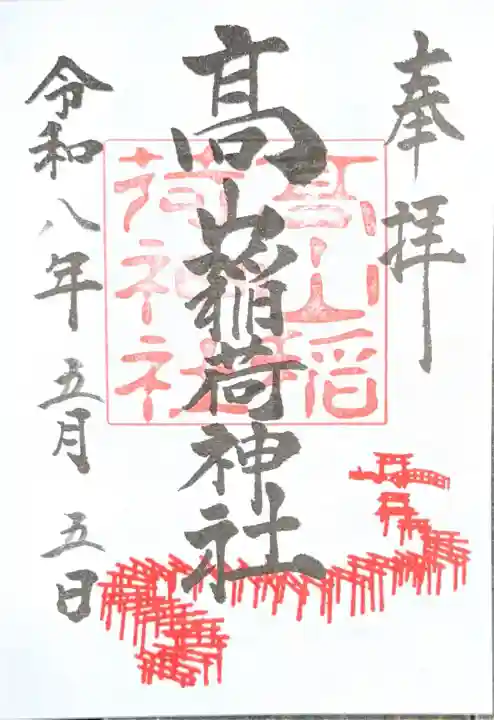 奉拝
髙山稲荷神社
髙山稲
荷神社
令和八年五月五日